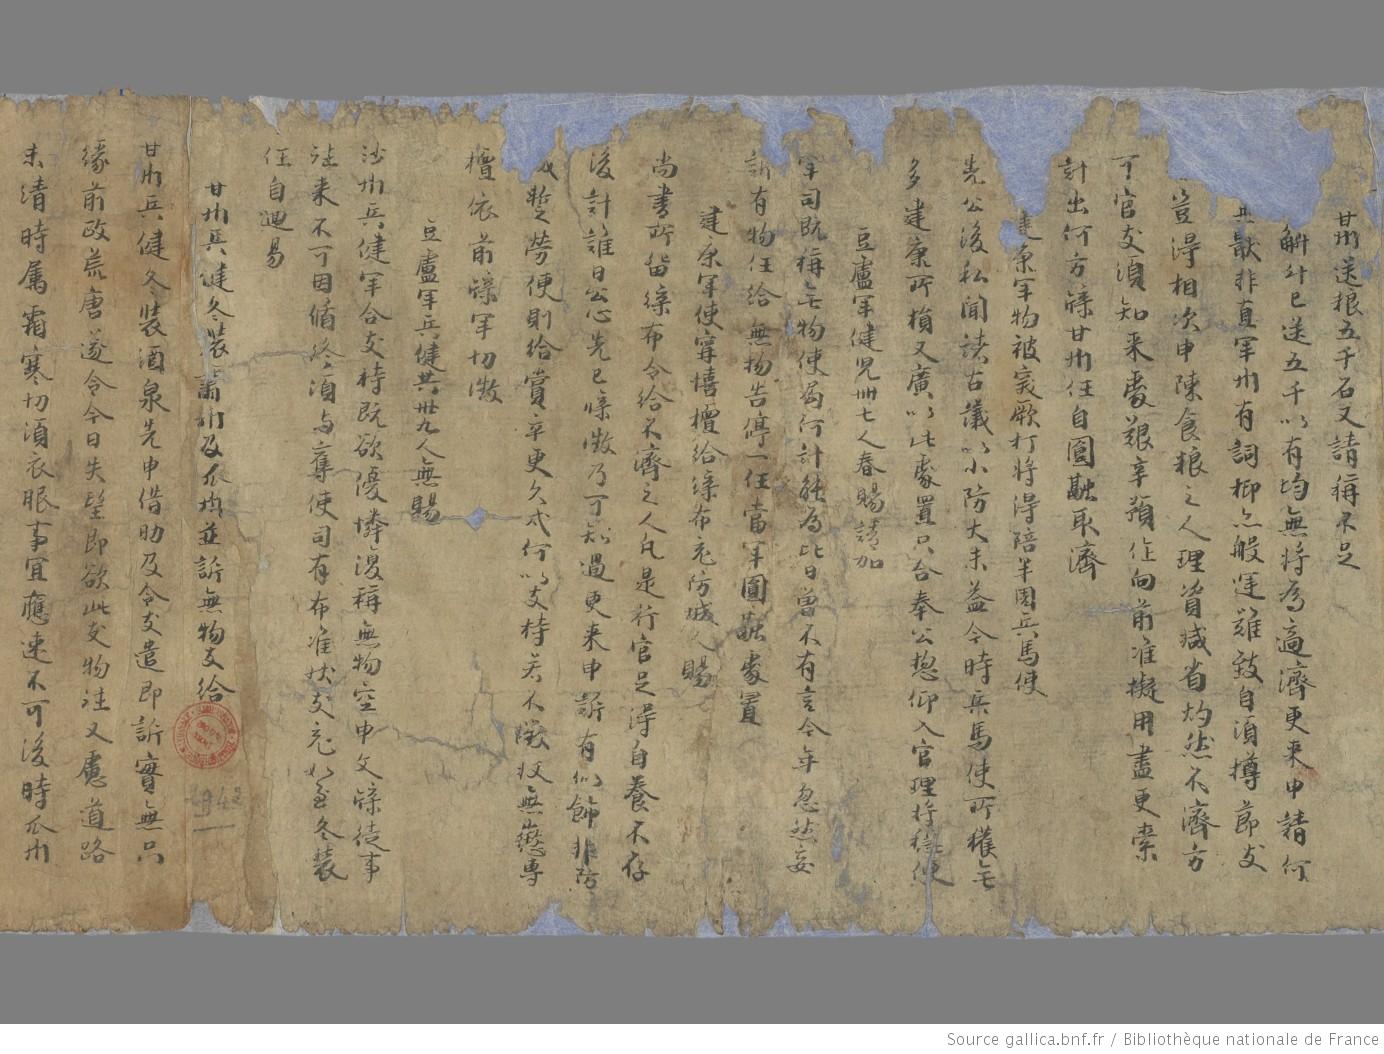 甘州送粮五千石又請稱不足
斛斗已送五千以有均無將為適濟更來申請何
獸非直軍州有詞抑亦般運難致自須撙節支
豈得相次申陳食粮之人理資減省灼然不濟方
可官支須知來處艱辛預作向前准擬用盡更索
計出何方牒甘州任自圓融取濟
建康軍物被突厥打將得陪半圍兵馬使
先公後私聞諸古議以小防大未益今時兵馬使所獲無
多建康所損又廣以此處置只合奉公揔仰入官理將穩便
豆盧軍健兒卌七人春賜請加
軍司既稱無物使司何計能為比日曾不有言今年忽然妄
訴有物任給無物告停一任當軍圓融處置
建康軍使甯憘擅給綵布充防城人賜
尚書所留綵布令給不濟之人凡是行官足得自養不存
後計誰曰公心先已牒徵乃可知過更來申訴有似飾非防
城蹔勞便則給賞卒更久戍何以支持若不徵收無懲專
擅依前牒軍切徵
豆盧軍兵健共卅九人無賜
沙州兵健軍合支持既欲優憐復稱無物空申文牒徒事
往來不可因循終須与奪使司有布准狀支充如至冬裝
任自迴易
甘州兵健冬裝肅州及瓜州並訴無物支給
甘州兵健冬裝酒泉先申借助及令支遣即訴實無只
緣前政荒唐遂令今日失望即欲此支物往又慮道路
未清時屬霜寒切須衣服事宜應速不可後時瓜州
Source gallica.bnf.fr / Bibliothèque nationale de France